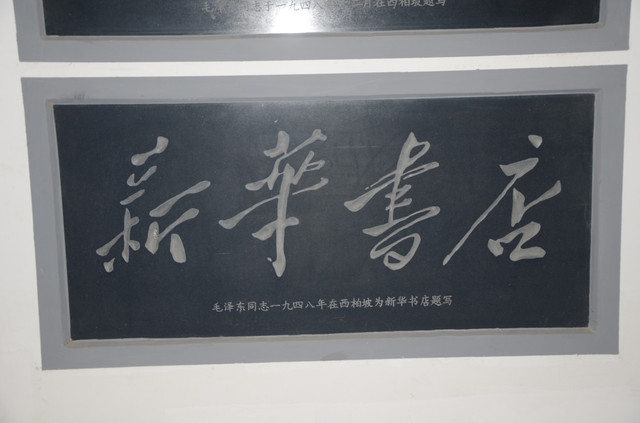 毛泽 志于一九四八 月在西柏坡题写
新華書店
毛泽东同志一九四八年在西柏坡为新华书店题写